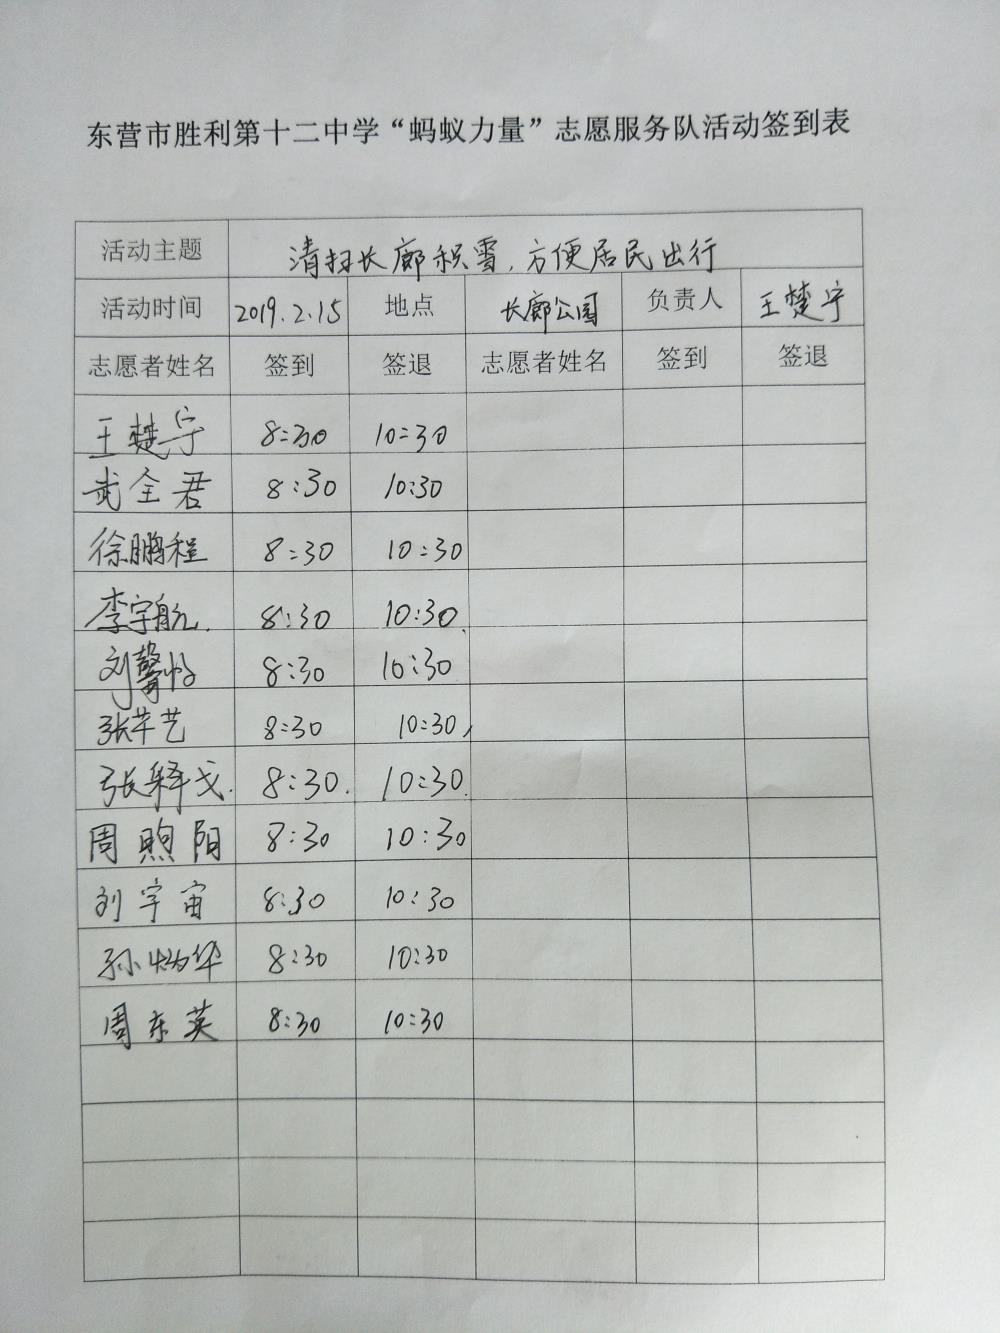 东营市胜利第十二中学“蚂蚁力量”志愿服务队活动签到表
活动主题 清扫长廊积雪，方便居民出行
活动时间 2019.2.15 地点 长廊公园 负责人 王楚宁
志愿者姓名 签到 签退 志愿者姓名 签到 签退
王楚宁 8:30 10:30
武全君 8:30 10:30
徐鹏程 8:30 10:30
李宇航 8:30 10:30
刘馨怡 8:30 10:30
张芊艺 8:30 10:30
张释戈 8:30 10:30
周煦阳 8:30 10:30
刘宇宙 8:30 10:30
孙炳华 8:30 10:30
周东英 8:30 10:30